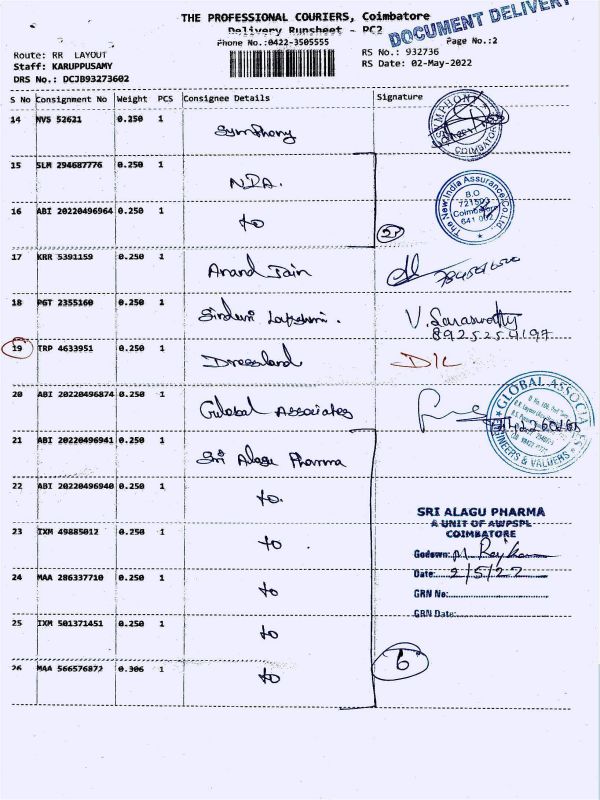 THE PROFESSIONAL COURIERS, Coimbatore
Delivery Runsheet - PC2
DOCUMENT DELIVERY
Phone No.:0422-3505555
Page No.:2
Route: RR LAYOUT
RS No.: 932736
Staff: KARUPPUSAMY
RS Date: 02-May-2022
DRS No.: DCJB93273602
S No Consignment No Weight PCS Consignee Details Signature
14 NVS 52621 0.250 1 Symphony
SYMPHONY
COIMBATORE
15 SLM 294687776 0.250 1 NIA.
The New India Assurance Co. Ltd.
B.O
721503
Coimbatore
641 002
16 ABI 20220496964 0.250 1 to
17 KRR 5391159 0.250 1 Anand Jain
18 PGT 2355160 0.250 1 V. Saraswathy
8925254197
19 TRP 4633951 0.250 1 Dressland D/L
20 ABI 20220496874 0.250 1 Global Associates
GLOBAL ASSOCIATES
ENGINEERS & VALUERS
21 ABI 20220496941 0.250 1 Sri Alagu Pharma
22 ABI 20220496940 0.250 1 to.
SRI ALAGU PHARMA
A UNIT OF AWPSPL
COIMBATORE
23 IXM 49885012 0.250 1 to.
Godown:
24 MAA 286337710 0.250 1 to
Date: 2/5/22
GRN No:
GRN Date:
25 IXM 501371451 0.250 1 to
26 MAA 566576872 0.306 1 to
6